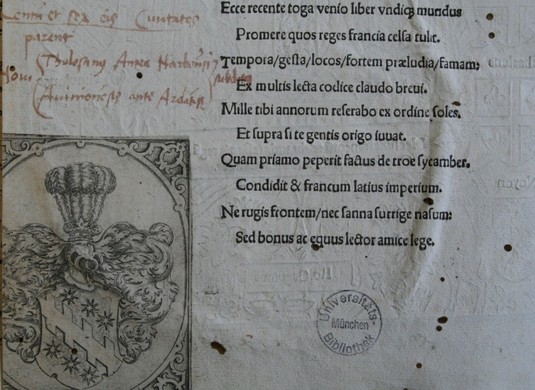 Centu et sex eis Ciuitates
parent
Ecce recente toga venio liber vndiq; mundus
Promere quos reges francia celsa tulit.
Tempora/gesta/locos/fortem præludia/famam:
Ex multis lecta codice claudo breui.
Mille tibi annorum reserabo ex ordine soles.
Et supra si te gentis origo iuuat.
Quam priamo peperit factus de troe sycamber.
Condidit & francum latius imperium.
Ne rugis frontem/nec sanna surrige nasum:
Sed bonus ac equus lector amice lege.
Universitäts-
München
Bibliothek